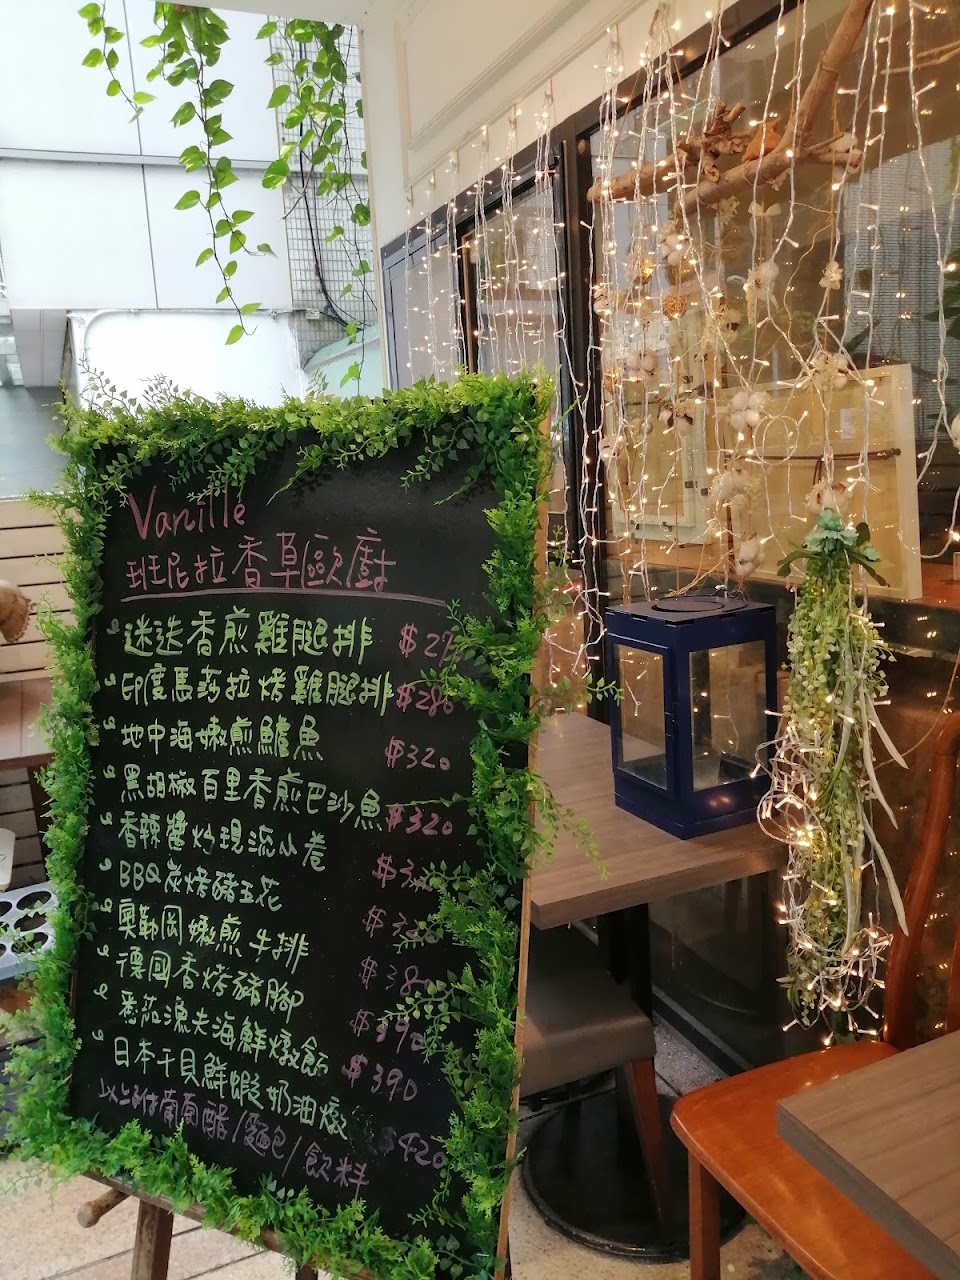 Vanille
班尼拉香草歐廚
迷迭香煎雞腿排 $27
印度馬莎拉烤雞腿排 $280
地中海嫩煎鱸魚 $320
黑胡椒百里香煎巴沙魚 $320
香辣醬炒現流小卷 $3
BBQ炭烤豬五花 $33
奧勒岡嫩煎牛排 $380
德國香烤豬腳 $390
番茄漁夫海鮮燉飯 $390
日本干貝鮮蝦奶油燉 $420
以上附葡萄醋/麵包/飲料